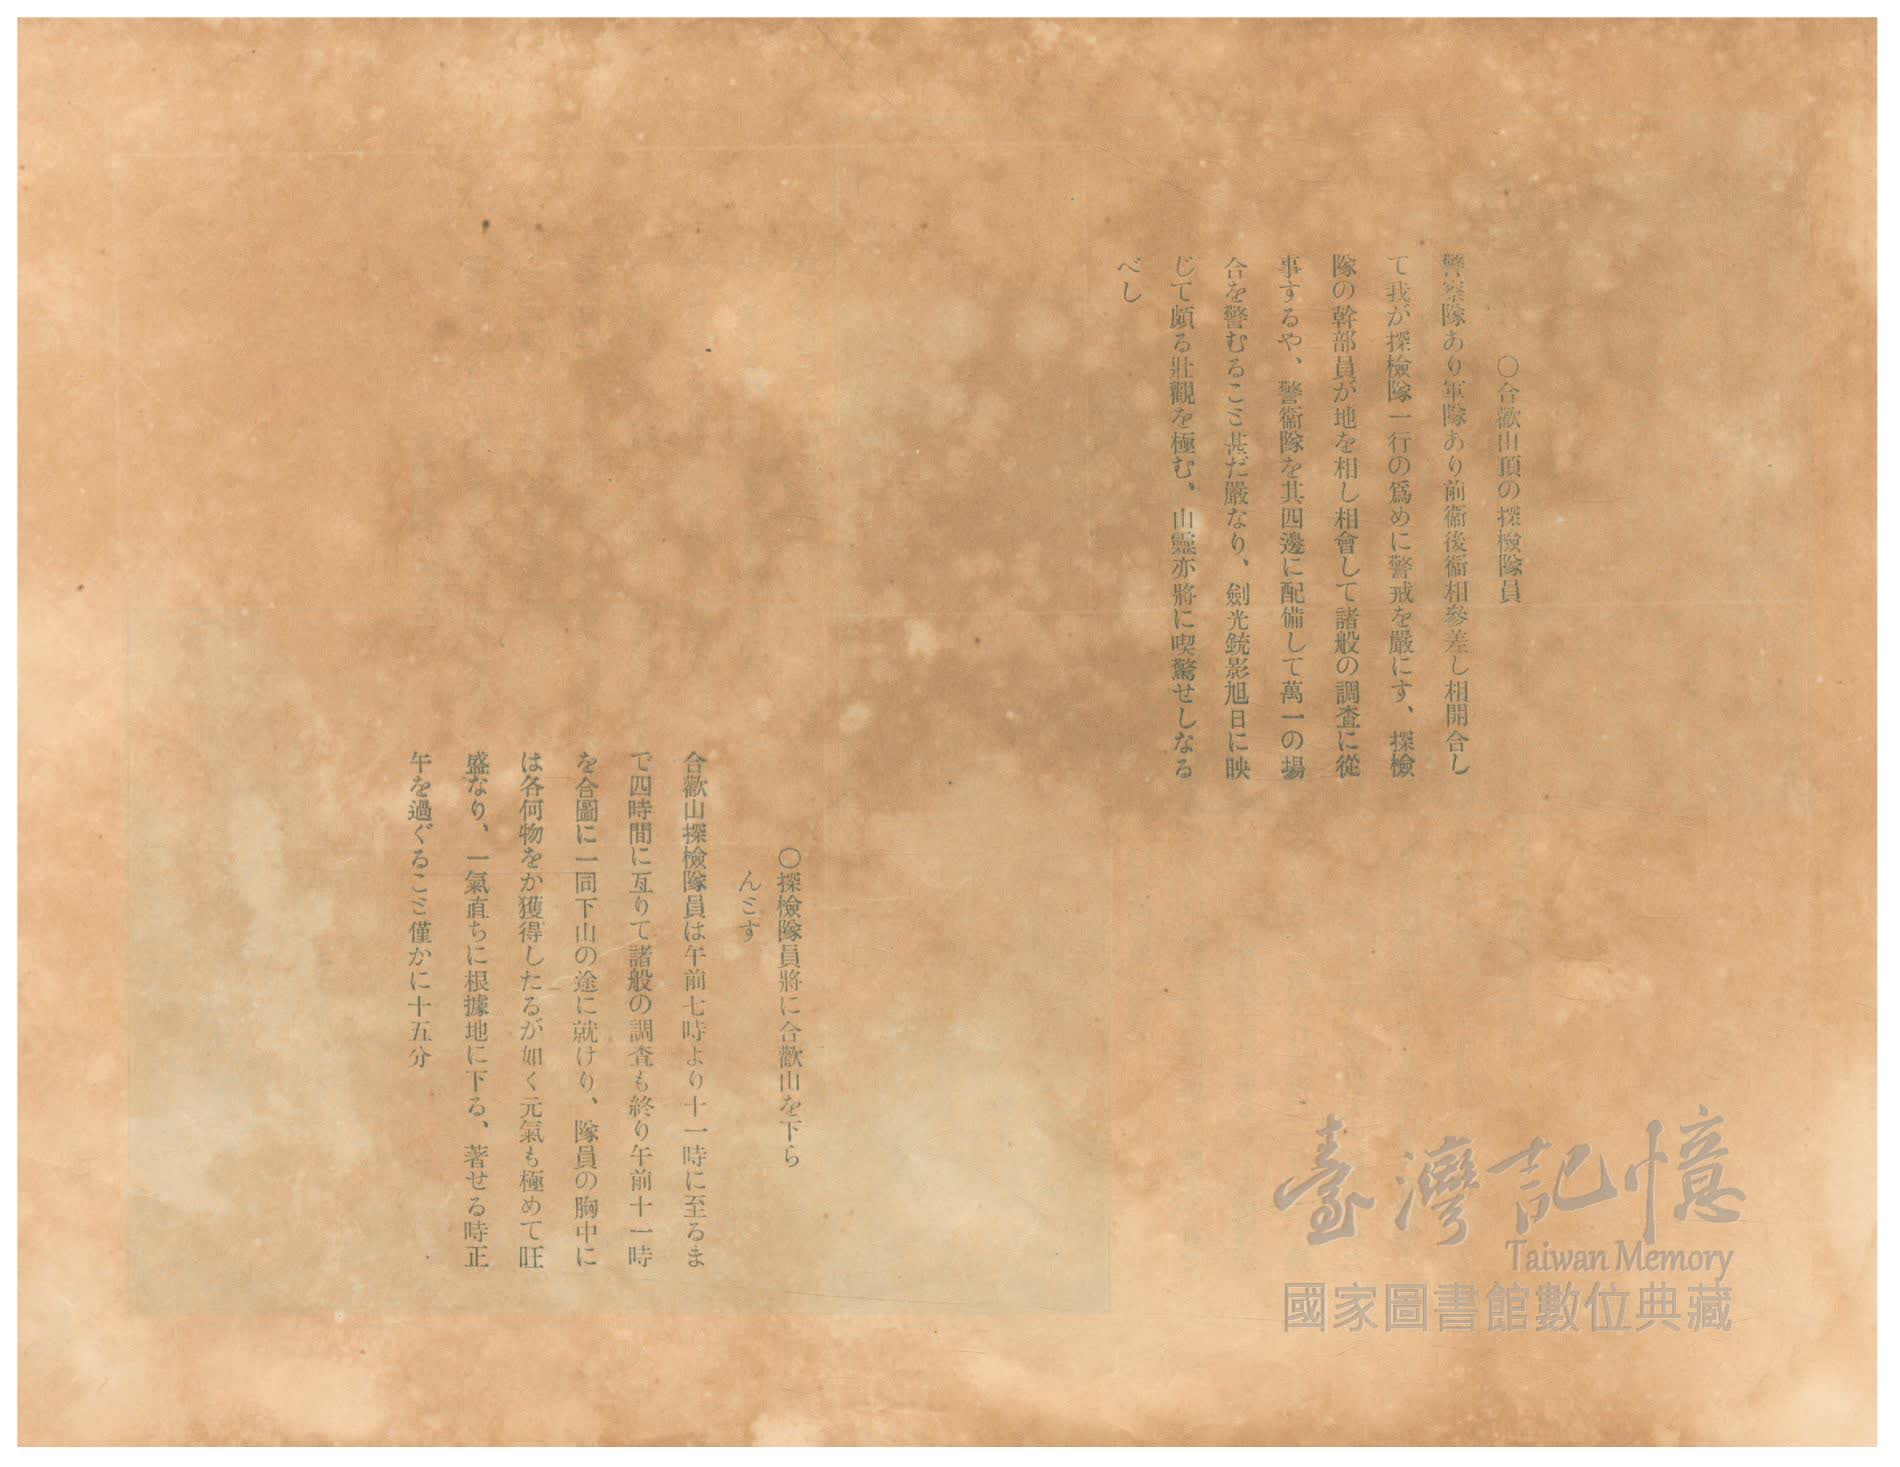 ○合歡山頂の探檢隊員
警察隊あり軍隊あり前衞後衞相參差し相開合し
て我が探檢隊一行の爲めに警戒を嚴にす、探檢
隊の幹部員が地を相し相會して諸般の調査に從
事するや、警衞隊を其四邊に配備して萬一の場
合を警むるこヾ甚だ嚴なり、劍光銃影旭日に映
じて頗る壯觀を極む、山靈亦將に喫驚せしなる
べし
○探檢隊員將に合歡山を下ら
んとす
合歡山探檢隊員は午前七時より十一時に至るま
で四時間に亙りて諸般の調査も終り午前十一時
を合圖に一同下山の途に就けり、隊員の胸中に
は各何物をか獲得したるが如く元氣も極めて旺
盛なり、一氣直ちに根據地に下る、著せる時正
午を過ぐること僅かに十五分
臺灣記憶
Taiwan Memory
國家圖書館數位典藏